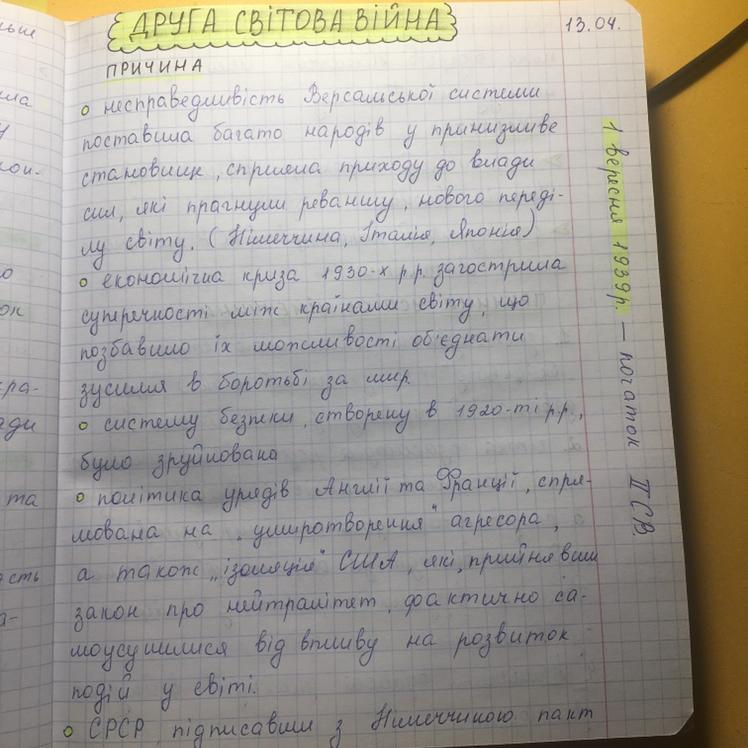 ДРУГА СВІТОВА ВІЙНА
13.04.
ПРИЧИНА
несправедливість Версальської системи
поставила багато народів у принизливе
становище, сприяла приходу до влади
сил, які прагнули реваншу, нового переді-
лу світу. (Німеччина, Італія, Японія)
економічна криза 1930-х р.р. загострила
суперечності між країнами світу, що
позбавило їх можливості об'єднати
зусилля в боротьбі за мир.
систему безпеки, створену в 1920-ті р.р.,
було зруйнована
політика урядів Англії та Франції, спря-
мована на „умиротворення" агресора, а
а також „ізоляція" США, які, прийнявши
закон про нейтралітет, фактично са-
моусунилися від впливу на розвиток
подій у світі.
СРСР, підписавши з Німеччиною пакт
1 вересня 1939р. — початок ІІ СВ.
ла
у
кой-
о
ок
кра-
ади
та
ость
а-